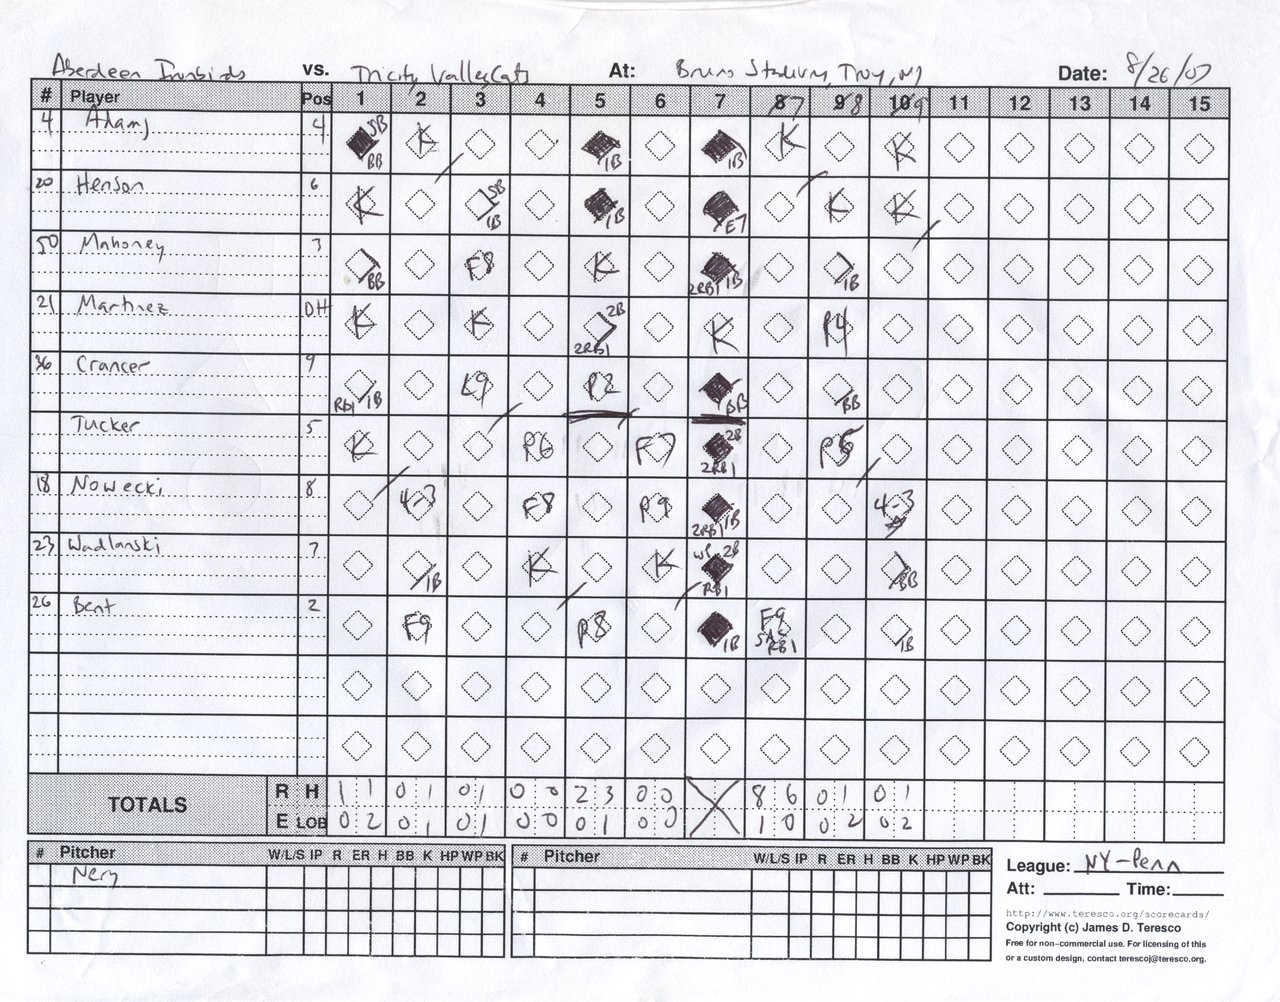 Aberdeen Ironbirds vs. Tricity ValleyCats At: Bruno Stadium, Troy, NY Date: 8/26/07
# Player Pos 1 2 3 4 5 6 7 8 7 9 8 10 9 11 12 13 14 15
4 Adams 4 SB BB K 1B 1B K K
20 Henson 6 K SB 1B 1B E7 K K
50 Mahoney 3 BB F8 K 2RBI 1B 1B
21 Martinez DH K K 2B 2RBI K P4
36 Crancer 9 RBI 1B L9 P2 BB BB
Tucker 5 K P6 F7 2B 2RBI P5
18 Nowecki 8 4-3 F8 P9 2RBI 1B 4-3
23 Wadlanski 7 1B K K WP 2B RBI BB
26 Bent 2 F9 P8 1B F9 SAC RBI 1B
TOTALS
R H 1 1 0 1 0 1 0 0 2 3 0 0 8 6 0 1 0 1
E LOB 0 2 0 1 0 1 0 0 0 1 0 0 1 0 0 2 0 2
# Pitcher W/L/S IP R ER H BB K HP WP BK # Pitcher W/L/S IP R ER H BB K HP WP BK
Nery
League: NY-Penn
Att: Time:
http://www.teresco.org/scorecards/
Copyright (c) James D. Teresco
Free for non-commercial use. For licensing of this
or a custom design, contact terescoj@teresco.org.